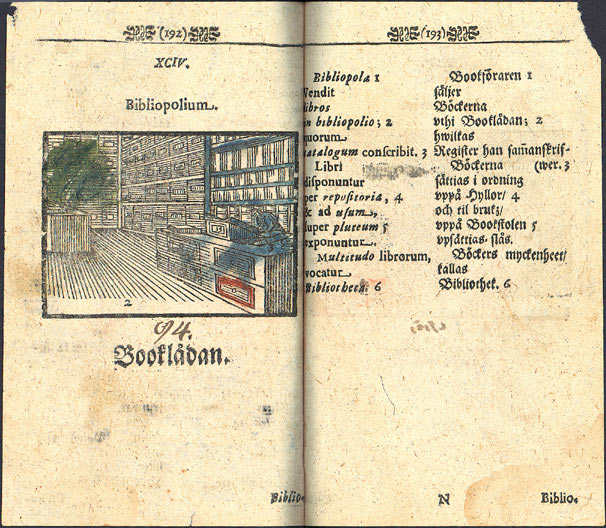 (192)
XCIV.
Bibliopolium.
2
94.
Booklådan.
Biblio-
(193)
Bibliopola 1
Vendit
libros
in bibliopolio; 2
quorum
catalogum conscribit. 3
Libri
disponuntur
per repositoria, 4
& ad usum,
super pluteum 5
exponuntur.
Multitudo librorum,
vocatur
Bibliotheca. 6
Bookföraren 1
säljer
Böckerna
vthi Booklådan; 2
hwilkas
Register han sam̃anskrif-
Böckerna (wer. 3
sättias i ordning
vppå Hyllor/ 4
och til bruk;
vppå Bookstolen 5
vpsättias. slås.
Böckers myckenheet/
kallas
Bibliothek. 6
N
Biblio-